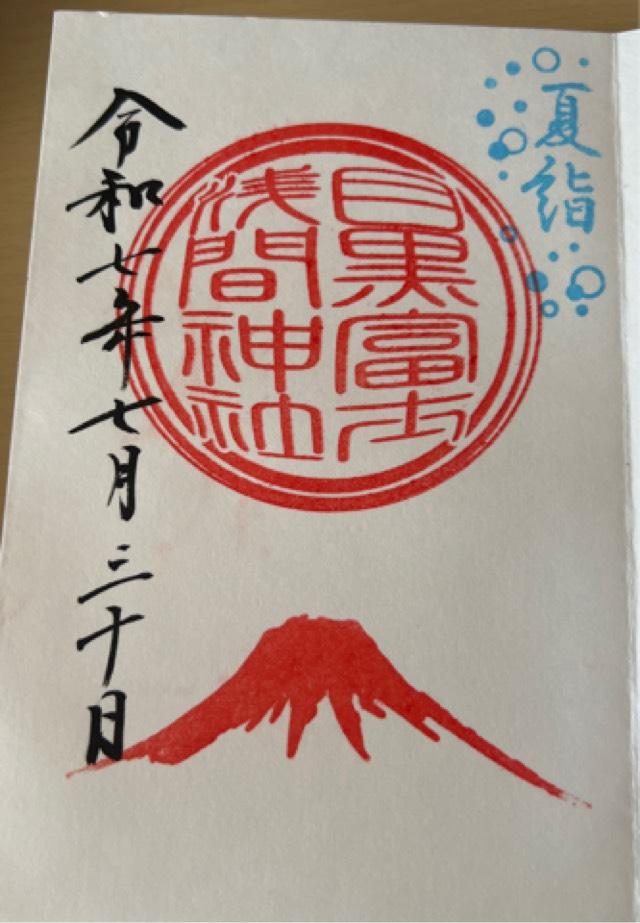 夏詣
目黒富士
浅間神社
令和七年七月三十日